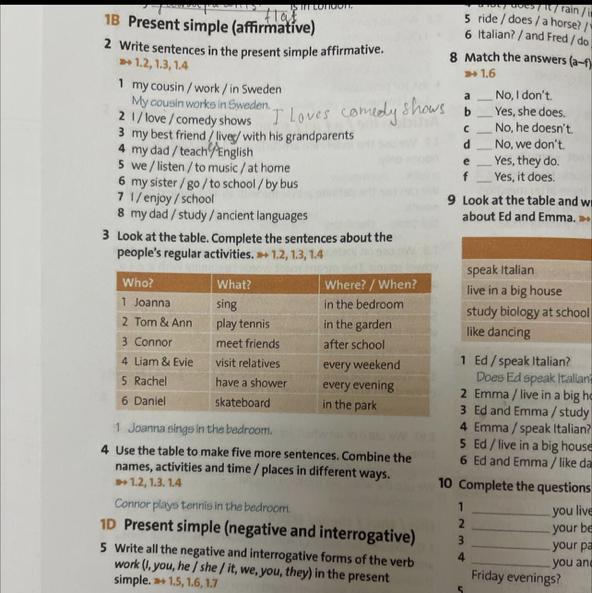 is in London.
flat
1B Present simple (affirmative)
2 Write sentences in the present simple affirmative.
➻ 1.2, 1.3, 1.4
1 my cousin / work / in Sweden
My cousin works in Sweden.
2 I / love / comedy shows I Loves comedy shows
3 my best friend / live / with his grandparents
4 my dad / teach / English
5 we / listen / to music / at home
6 my sister / go / to school / by bus
7 I / enjoy / school
8 my dad / study / ancient languages
3 Look at the table. Complete the sentences about the
people's regular activities. ➻ 1.2, 1.3, 1.4
Who? What? Where? / When?
1 Joanna sing in the bedroom
2 Tom & Ann play tennis in the garden
3 Connor meet friends after school
4 Liam & Evie visit relatives every weekend
5 Rachel have a shower every evening
6 Daniel skateboard in the park
1 Joanna sings in the bedroom.
4 Use the table to make five more sentences. Combine the
names, activities and time / places in different ways.
➻ 1.2, 1.3. 1.4
Connor plays tennis in the bedroom.
1D Present simple (negative and interrogative)
5 Write all the negative and interrogative forms of the verb
work (I, you, he / she / it, we, you, they) in the present
simple. ➻ 1.5, 1.6, 1.7
5 ride / does / a horse? /
6 Italian? / and Fred / do
8 Match the answers (a–f)
➻ 1.6
a ___ No, I don't.
b ___ Yes, she does.
c ___ No, he doesn't.
d ___ No, we don't.
e ___ Yes, they do.
f ___ Yes, it does.
9 Look at the table and
about Ed and Emma. ➻
speak Italian
live in a big house
study biology at school
like dancing
1 Ed / speak Italian?
Does Ed speak Italian?
2 Emma / live in a big
3 Ed and Emma / study
4 Emma / speak Italian?
5 Ed / live in a big house
6 Ed and Emma / like
10 Complete the questions
1 ___ you
2 ___ your
3 ___ your
4 ___ you
Friday evenings?
5